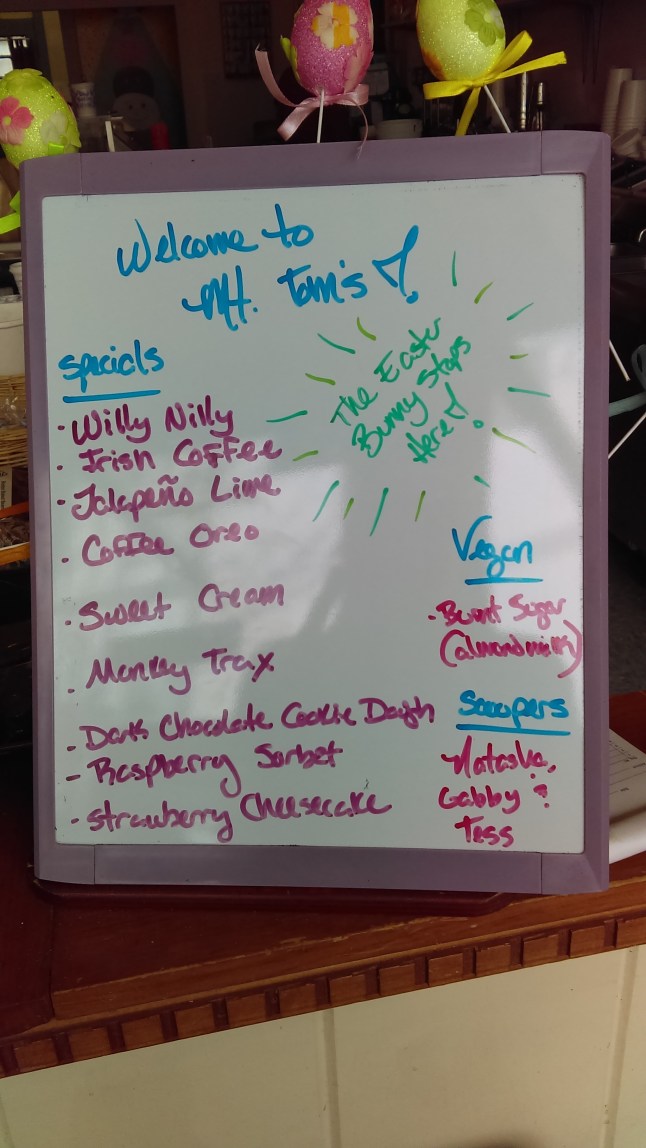 Welcome to
Mt. Tom's!
The Easter
Bunny Stops
Here!
Specials
· Willy Nilly
· Irish Coffee
· Jalapeño Lime
· Coffee Oreo
· Sweet Cream
· Monkey Trax
- Dark Chocolate Cookie Dough
- Raspberry Sorbet
· Strawberry Cheesecake
Vegan
· Burnt Sugar
(almond milk)
Scoopers
Natasha,
Gabby &
Tess